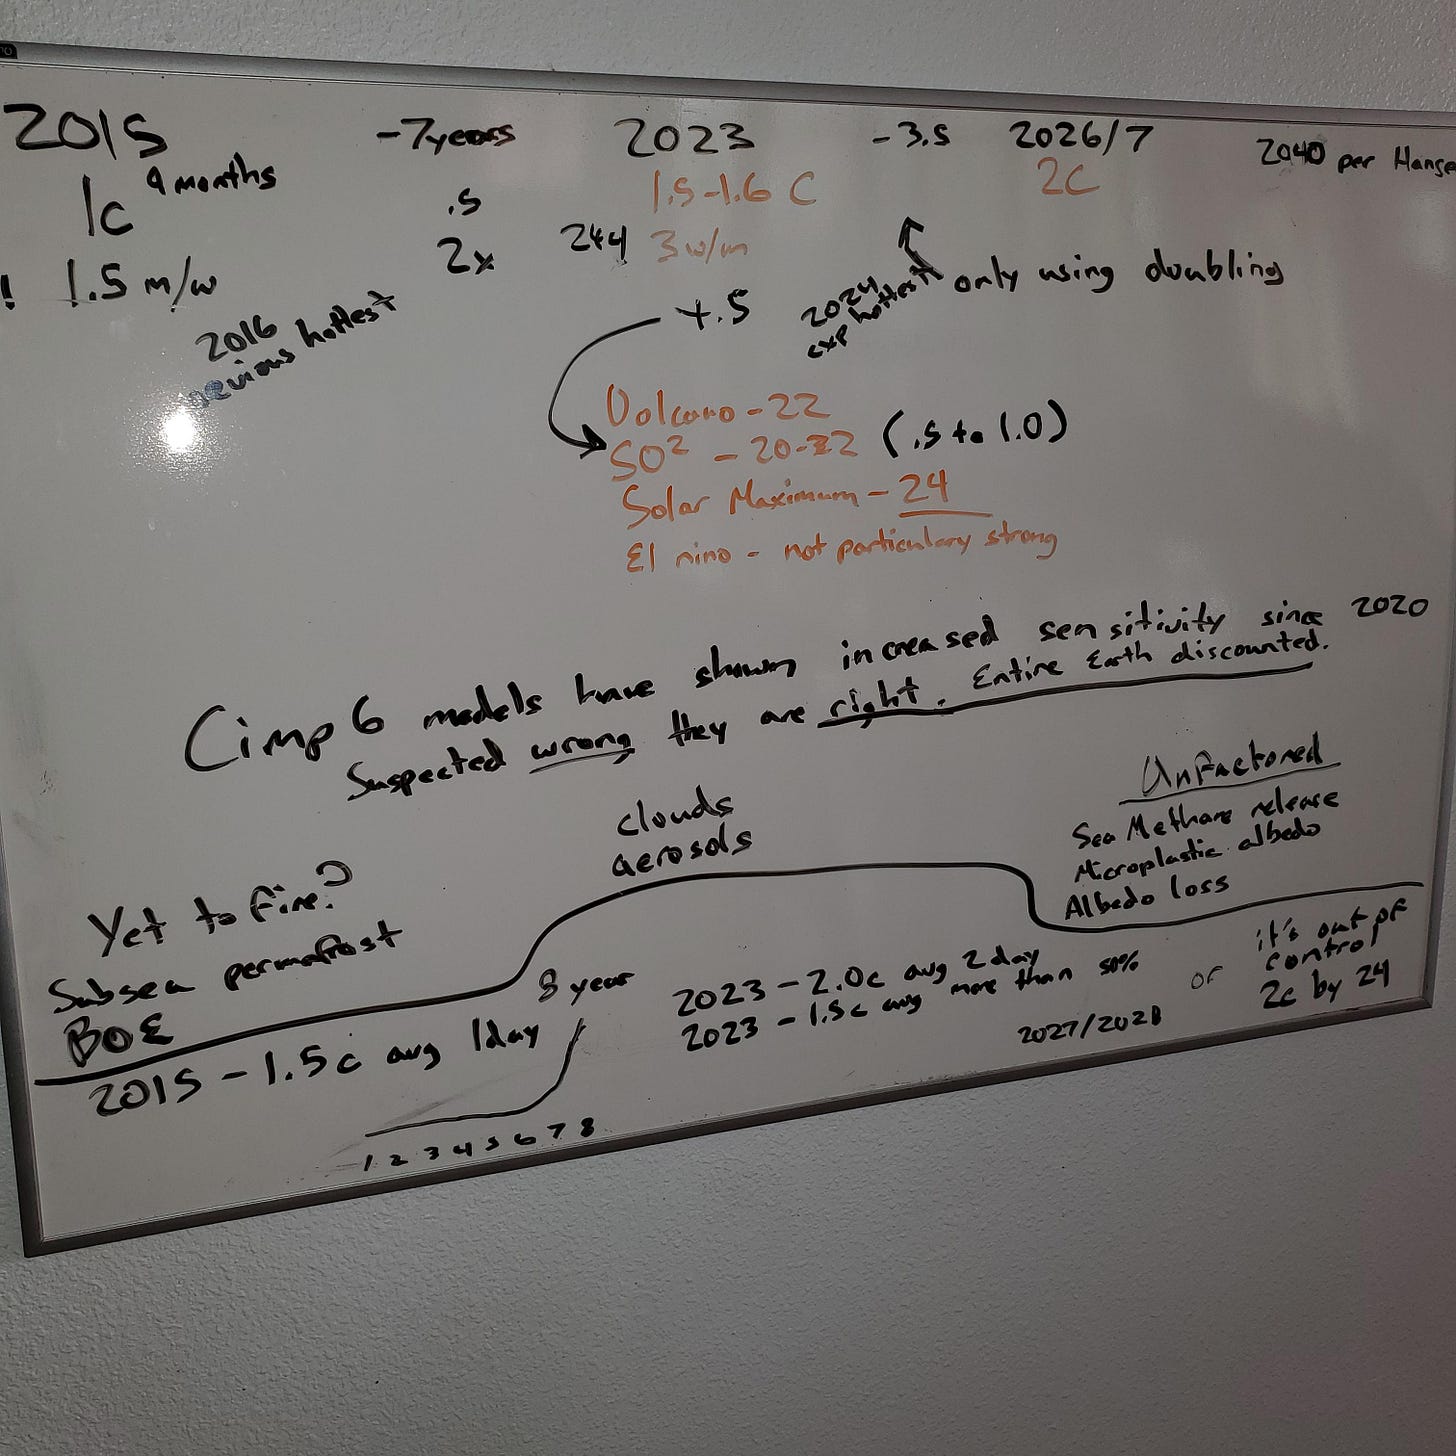 2015
9 months
1c
! 1.5 m/w
2016
previous hottest
-7years
.5
2x
2023
1.5-1.6 C
244 3 w/m
+.5
-3.5
2026/7
2C
2040 per Hanse
2024
exp hottest
only using doubling
Volcano - 22
SO² - 20-22 (.5 to 1.0)
Solar Maximum - 24
El nino - not particulary strong
Cimp 6 models have shown increased sensitivity since 2020
Suspected wrong they are right. Entire Earth discounted.
clouds
aerosols
Unfactored
Sea Methane release
Microplastic albedo
Albedo loss
Yet to fire?
Subsea permafrost
BOE
2015 - 1.5c avg 1day
8 year
1 2 3 4 5 6 7 8
2023 - 2.0c avg 2day
2023 - 1.5c avg more than 50%
2027/2028
or
it's out of
control
2c by 24